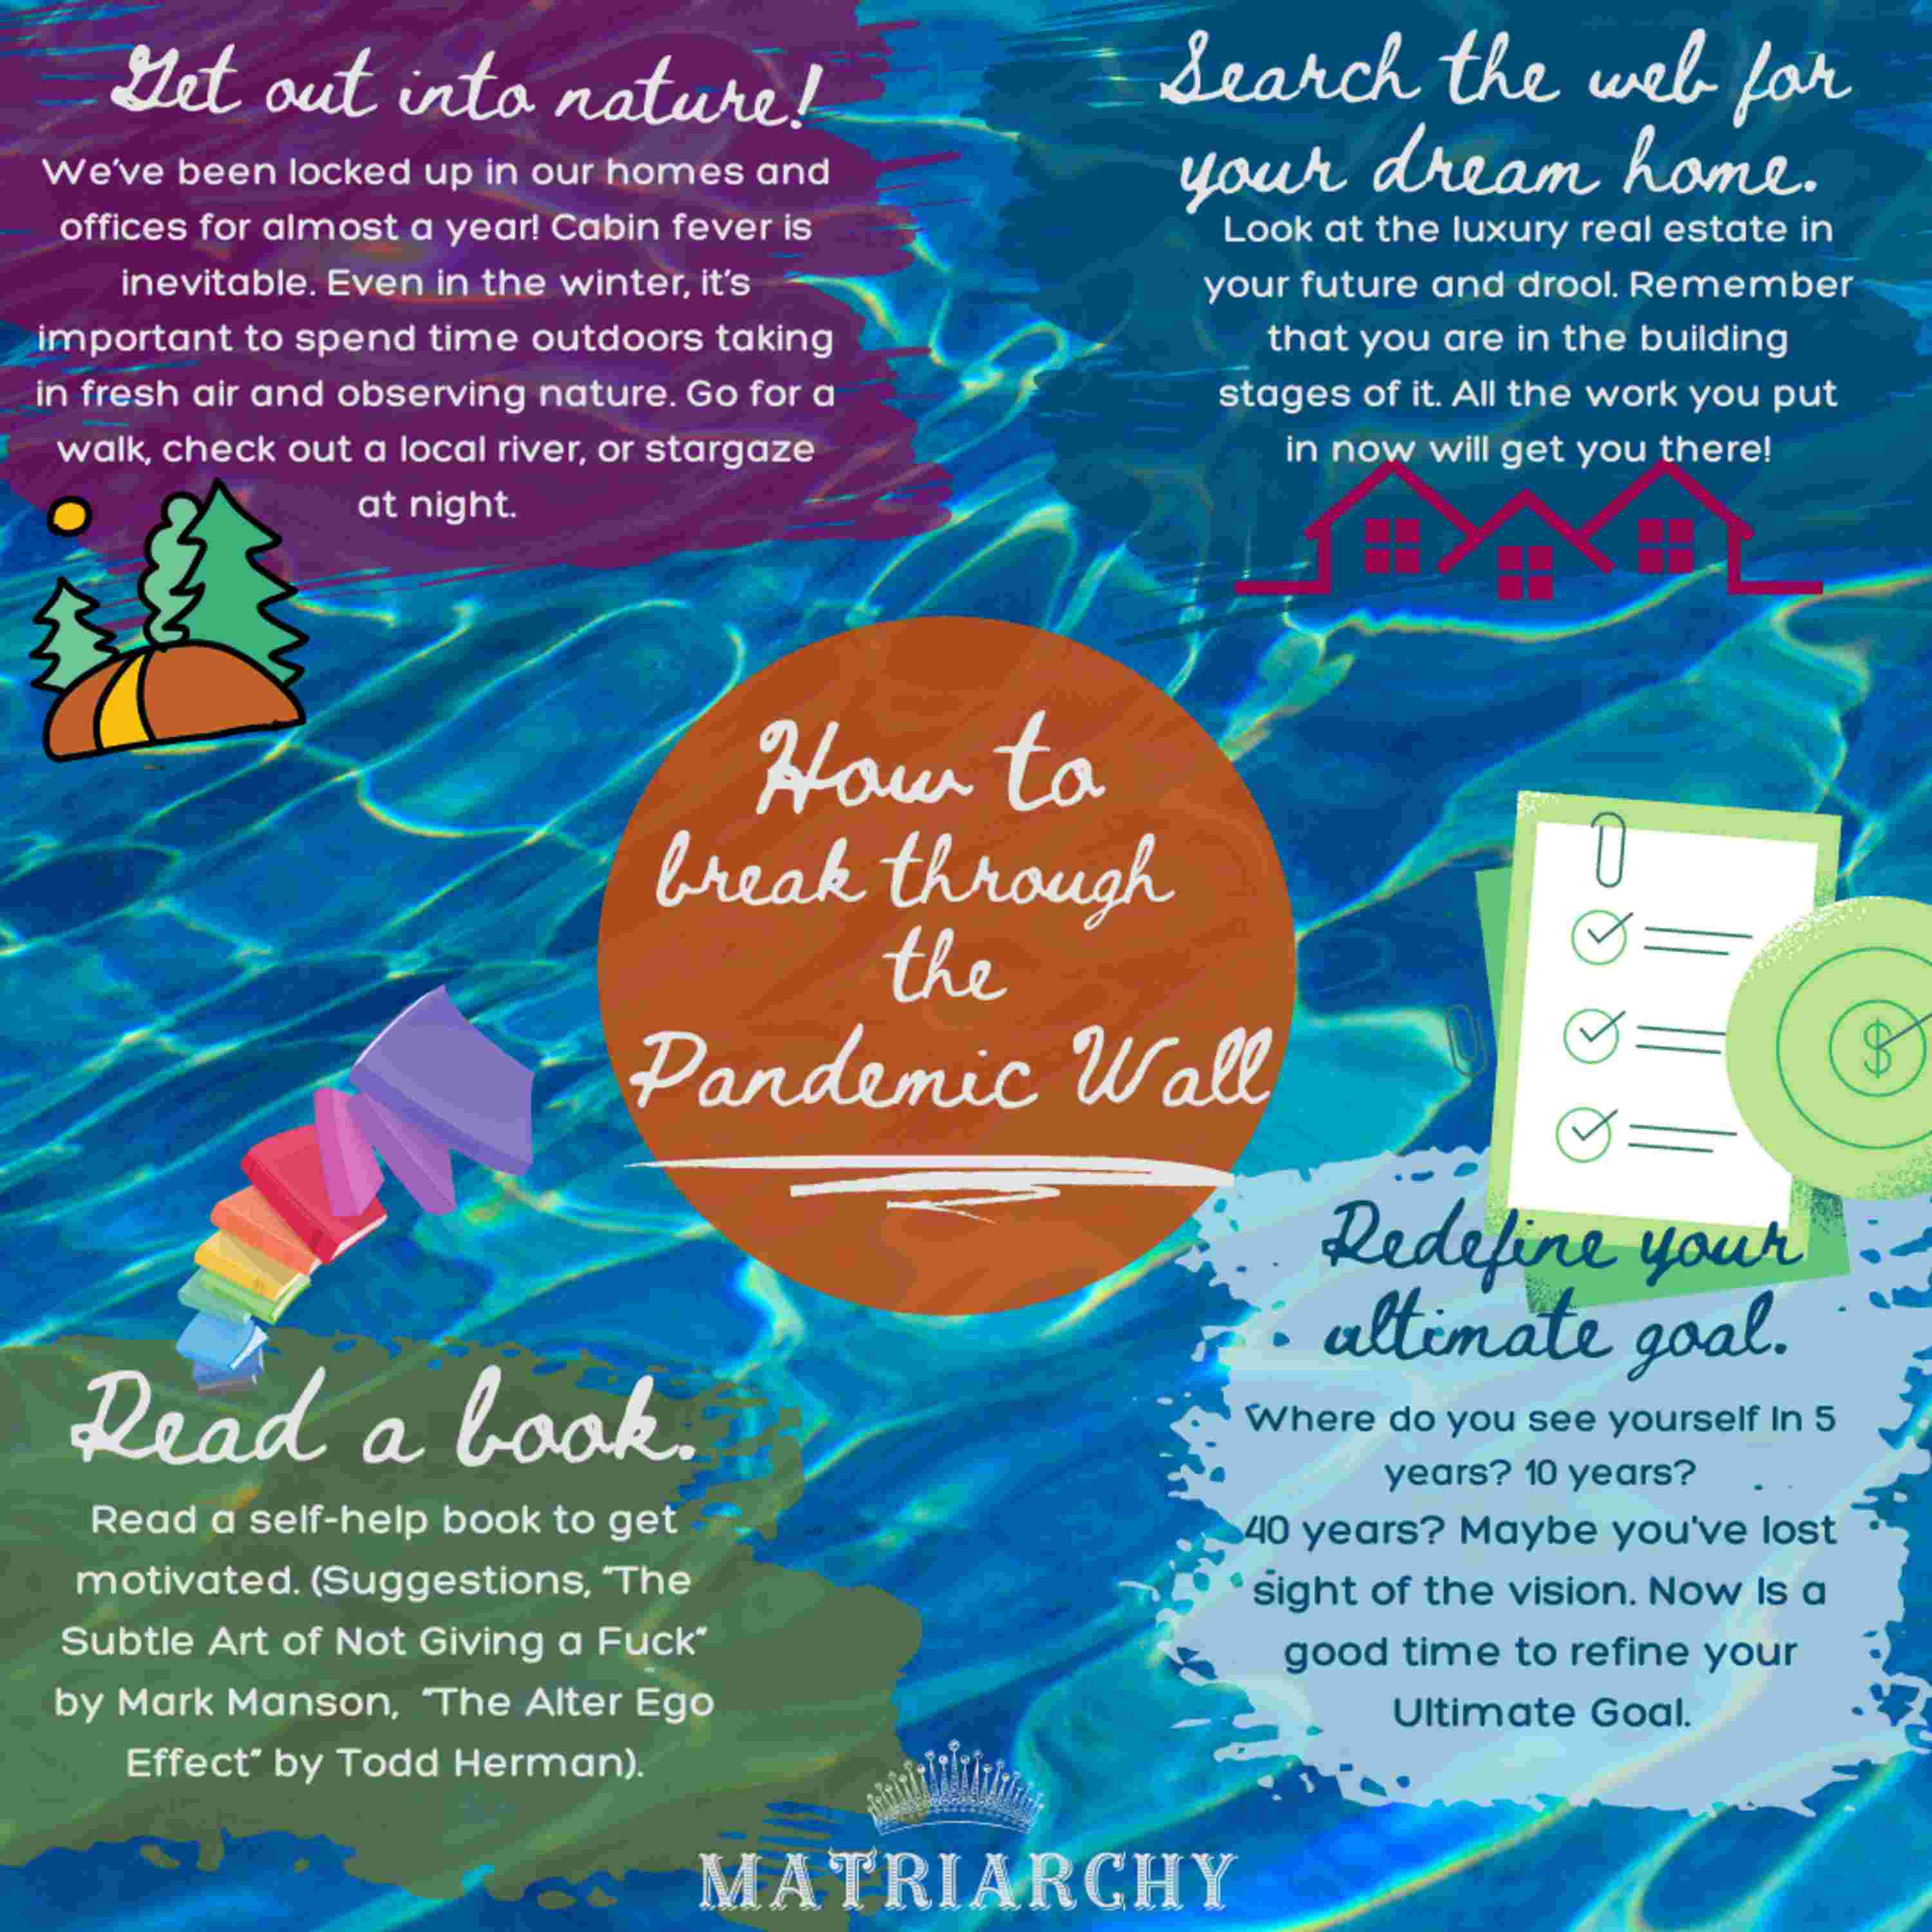 Get out into nature!
We've been locked up in our homes and
offices for almost a year! Cabin fever is
inevitable. Even in the winter, it's
important to spend time outdoors taking
in fresh air and observing nature. Go for a
walk, check out a local river, or stargaze
at night.
Search the web for
your dream home.
Look at the luxury real estate in
your future and drool. Remember
that you are in the building
stages of it. All the work you put
in now will get you there!
How to
break through
the
Pandemic Wall
$
Read a book.
Read a self-help book to get
motivated. (Suggestions, "The
Subtle Art of Not Giving a Fuck"
by Mark Manson, "The Alter Ego
Effect" by Todd Herman).
Redefine your
ultimate goal.
Where do you see yourself In 5
years? 10 years?
40 years? Maybe you've lost
sight of the vision. Now Is a
good time to refine your
Ultimate Goal.
MATRIARCHY